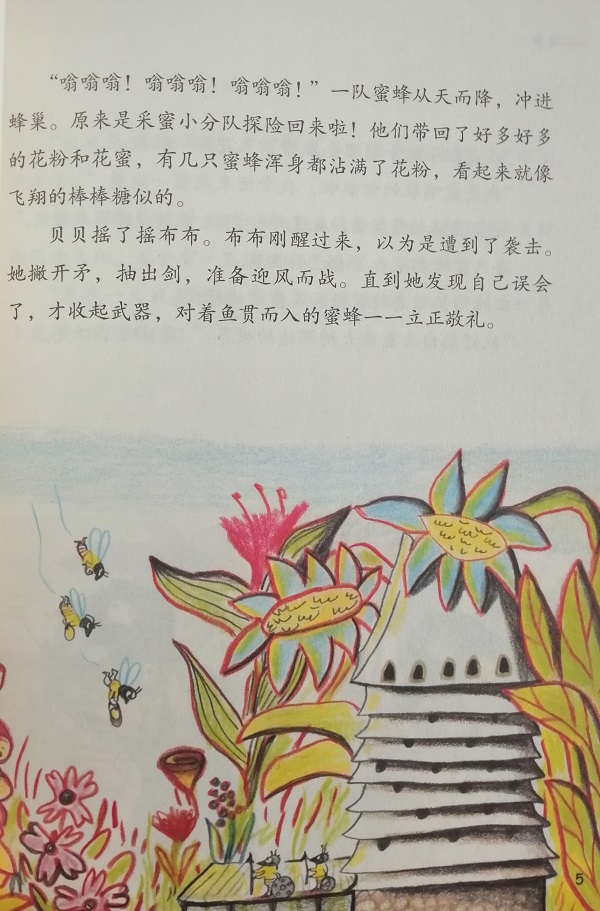 “嗡嗡嗡！嗡嗡嗡！嗡嗡嗡！”一队蜜蜂从天而降，冲进
蜂巢。原来是采蜜小分队探险回来啦！他们带回了好多好多
的花粉和花蜜，有几只蜜蜂浑身都沾满了花粉，看起来就像
飞翔的棒棒糖似的。
贝贝摇了摇布布。布布刚醒过来，以为是遭到了袭击。
她撇开矛，抽出剑，准备迎风而战。直到她发现自己误会
了，才收起武器，对着鱼贯而入的蜜蜂一一立正敬礼。
5